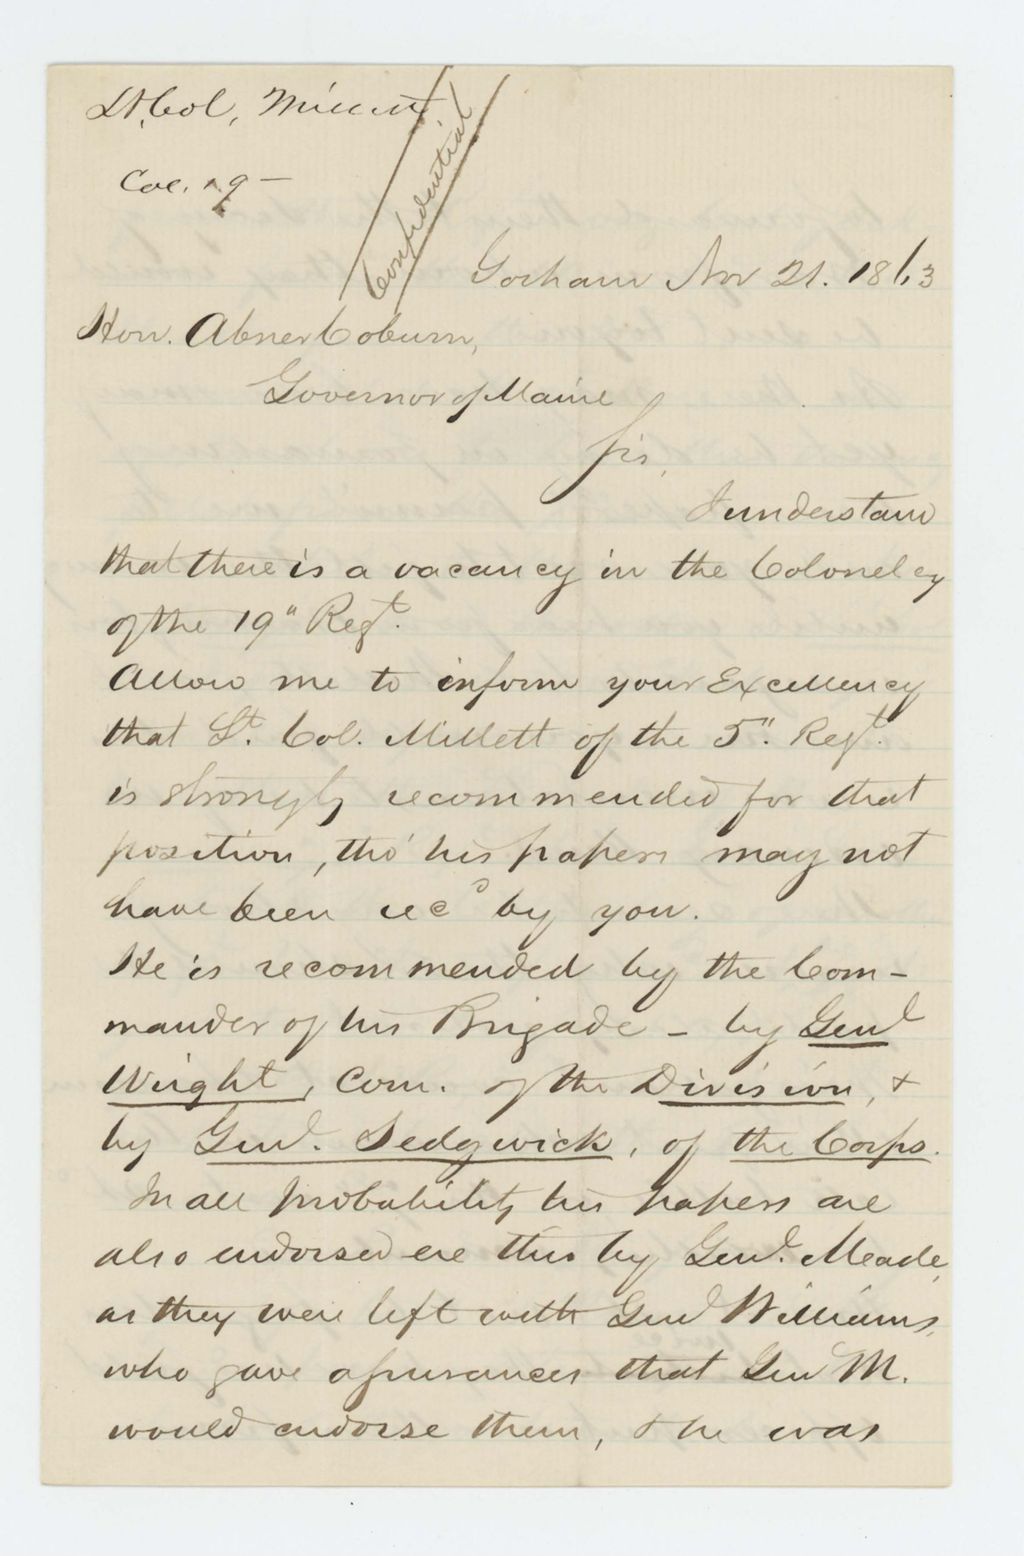 Lt. Col. Millett
Col. 19 —
Confidential
Gorham Nov 21. 1863
Hon. Abner Coburn,
Governor of Maine
Sir,
I understand
that there is a vacancy in the Colonelcy
of the 19" Regt.
Allow me to inform your Excellency
that Lt. Col. Millett of the 5". Regt.
is strongly recommended for that
position, tho' his papers may not
have been recd by you.
He is recommended by the Com-
mander of his Brigade - by Genl
Wright, Com. of the Division, &
by Genl. Sedgwick, of the Corps.
In all probability his papers are
also endorsed ere this by Genl. Meade,
as they were left with Genl Williams,
who gave assurances that Gen M.
would endorse them, & he was